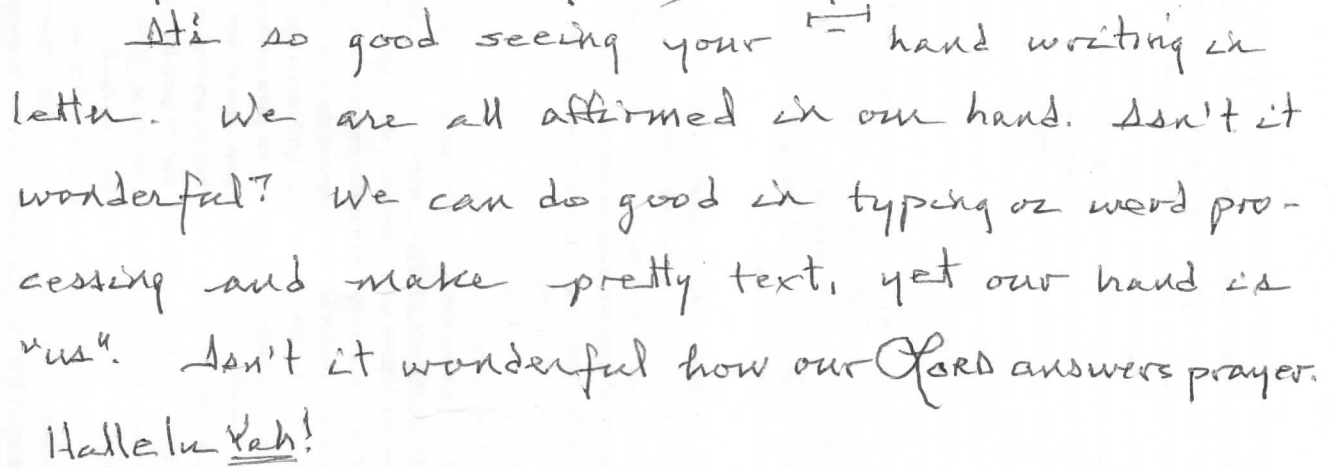 Iti so good seeing your hand writing in
letter. We are all affirmed in our hand. Isn't it
wonderful? We can do good in typing or word pro-
cessing and make pretty text, yet our hand is
"us". Isn't it wonderful how our LORD answers prayer.
Hallelu Yah!